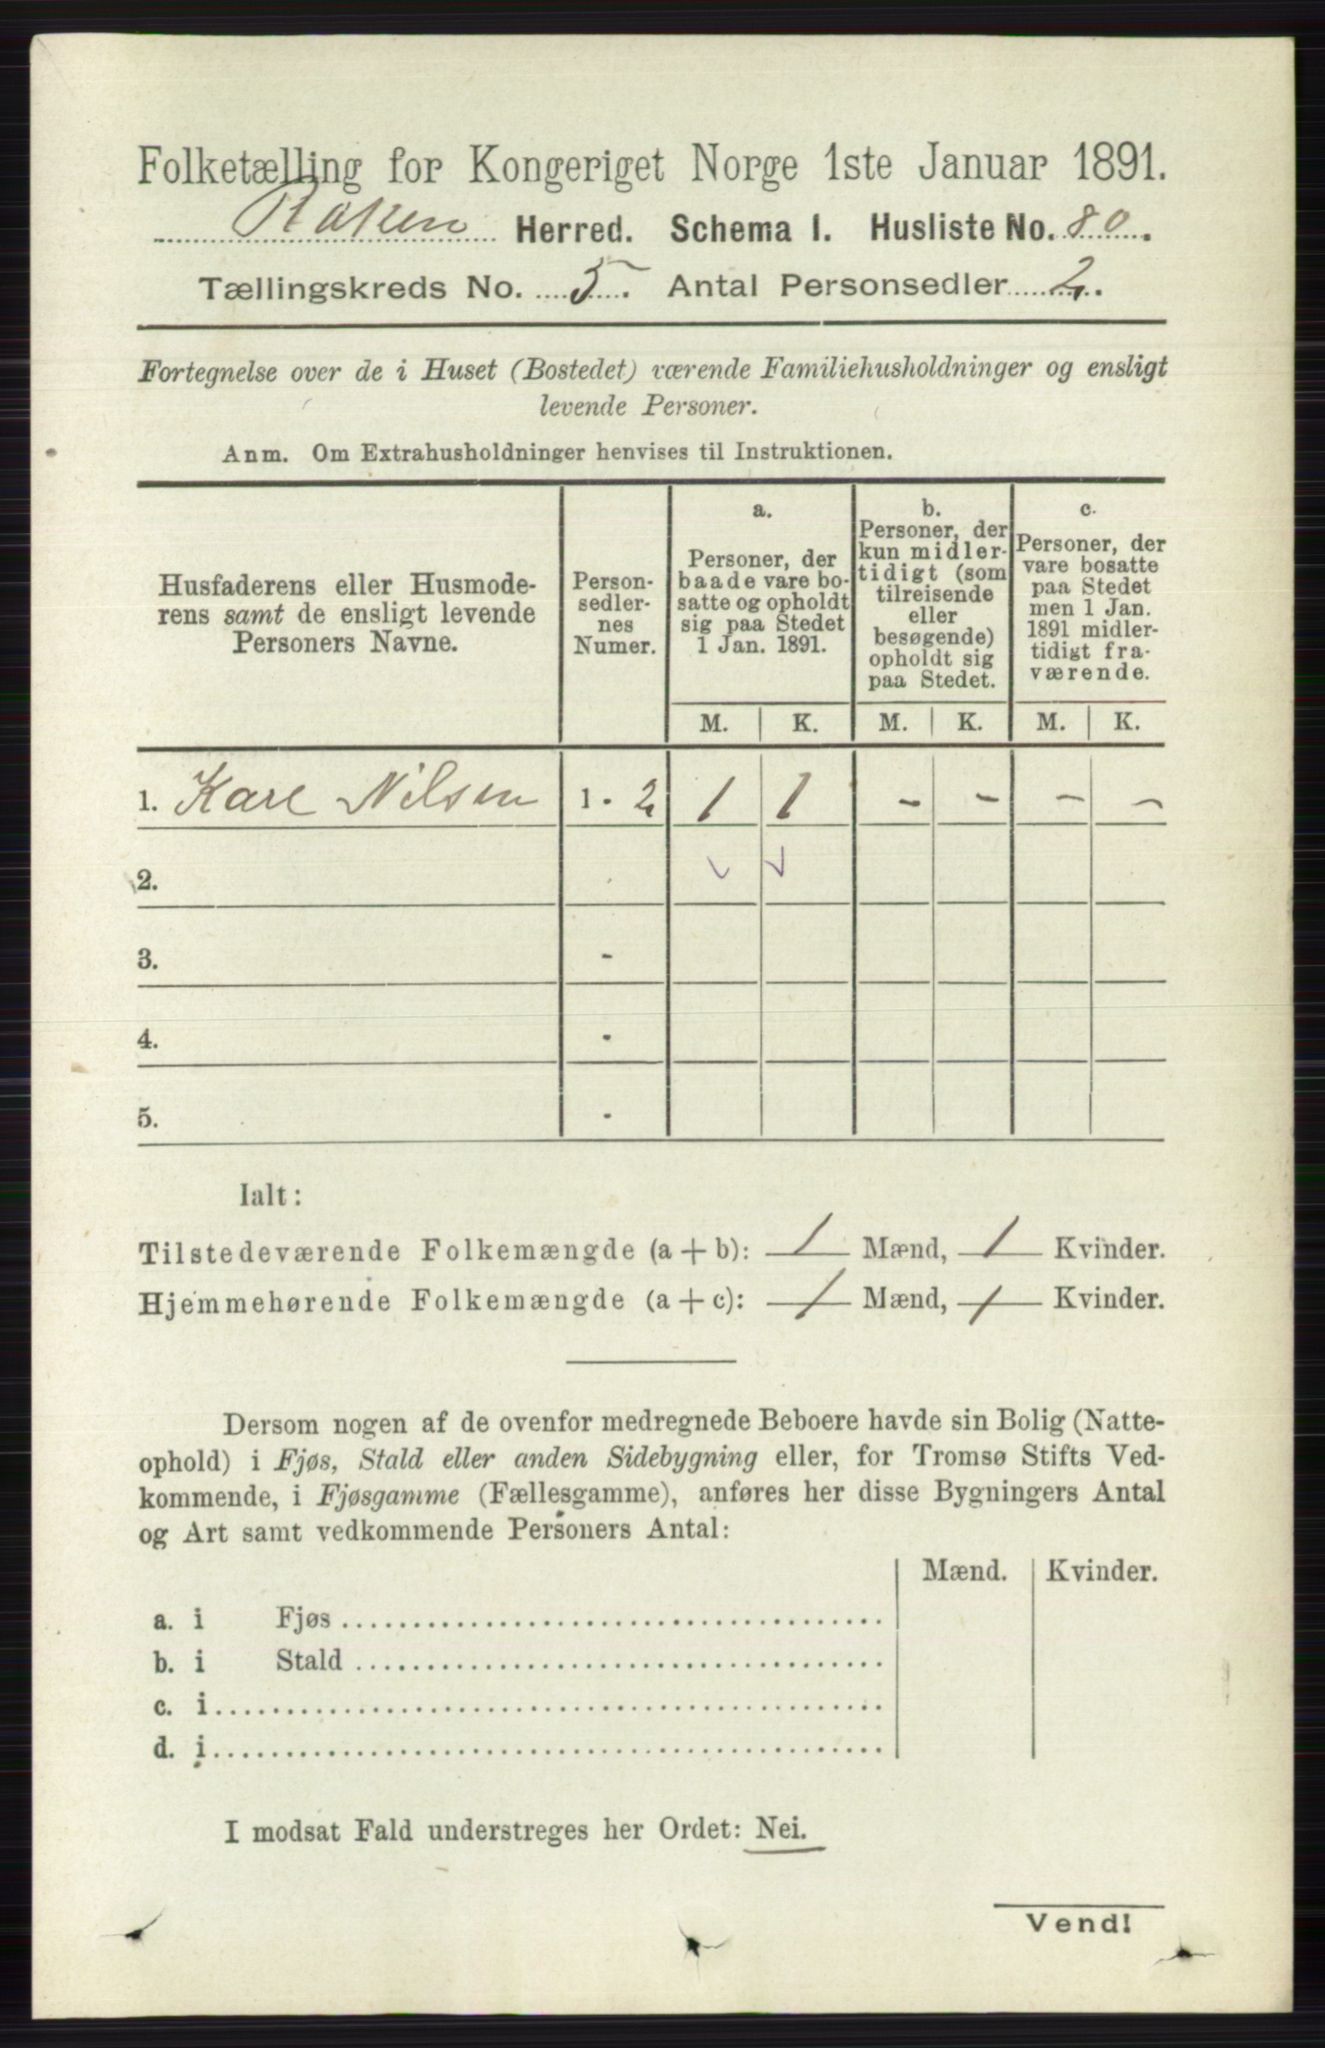 Folketælling for Kongeriget Norge 1ste Januar 1891.
Raken Herred. Schema I. Husliste No. 80.
Tællingskreds No. 5. Antal Personsedler 2.
Fortegnelse over de i Huset (Bostedet) værende Familiehusholdninger og ensligt
levende Personer.
Anm. Om Extrahusholdninger henvises til Instruktionen.
Husfaderens eller Husmode-
rens samt de ensligt levende
Personers Navne.
Person-
sedler-
nes
Numer.
a.
Personer, der
baade vare bo-
satte og opholdt
sig paa Stedet
1 Jan. 1891.
b.
Personer, der
kun midler-
tidigt (som
tilreisende
eller
besøgende)
opholdt sig
paa Stedet.
c.
Personer, der
vare bosatte
paa Stedet
men 1 Jan.
1891 midler-
tidigt fra-
værende.
M. K. M. K. M. K.
1. Karl Nilsen 1 - 2 1 1 - - - -
2.
3. -
4. -
5. -
Ialt:
Tilstedeværende Folkemængde (a + b): 1 Mænd, 1 Kvinder.
Hjemmehørende Folkemængde (a + c): 1 Mænd, 1 Kvinder.
Dersom nogen af de ovenfor medregnede Beboere havde sin Bolig (Natte-
ophold) i Fjøs, Stald eller anden Sidebygning eller, for Tromsø Stifts Ved-
kommende, i Fjøsgamme (Fællesgamme), anføres her disse Bygningers Antal
og Art samt vedkommende Personers Antal:
Mænd. Kvinder.
a. i Fjøs
b. i Stald
c. i
d. i
I modsat Fald understreges her Ordet: Nei.
Vend!